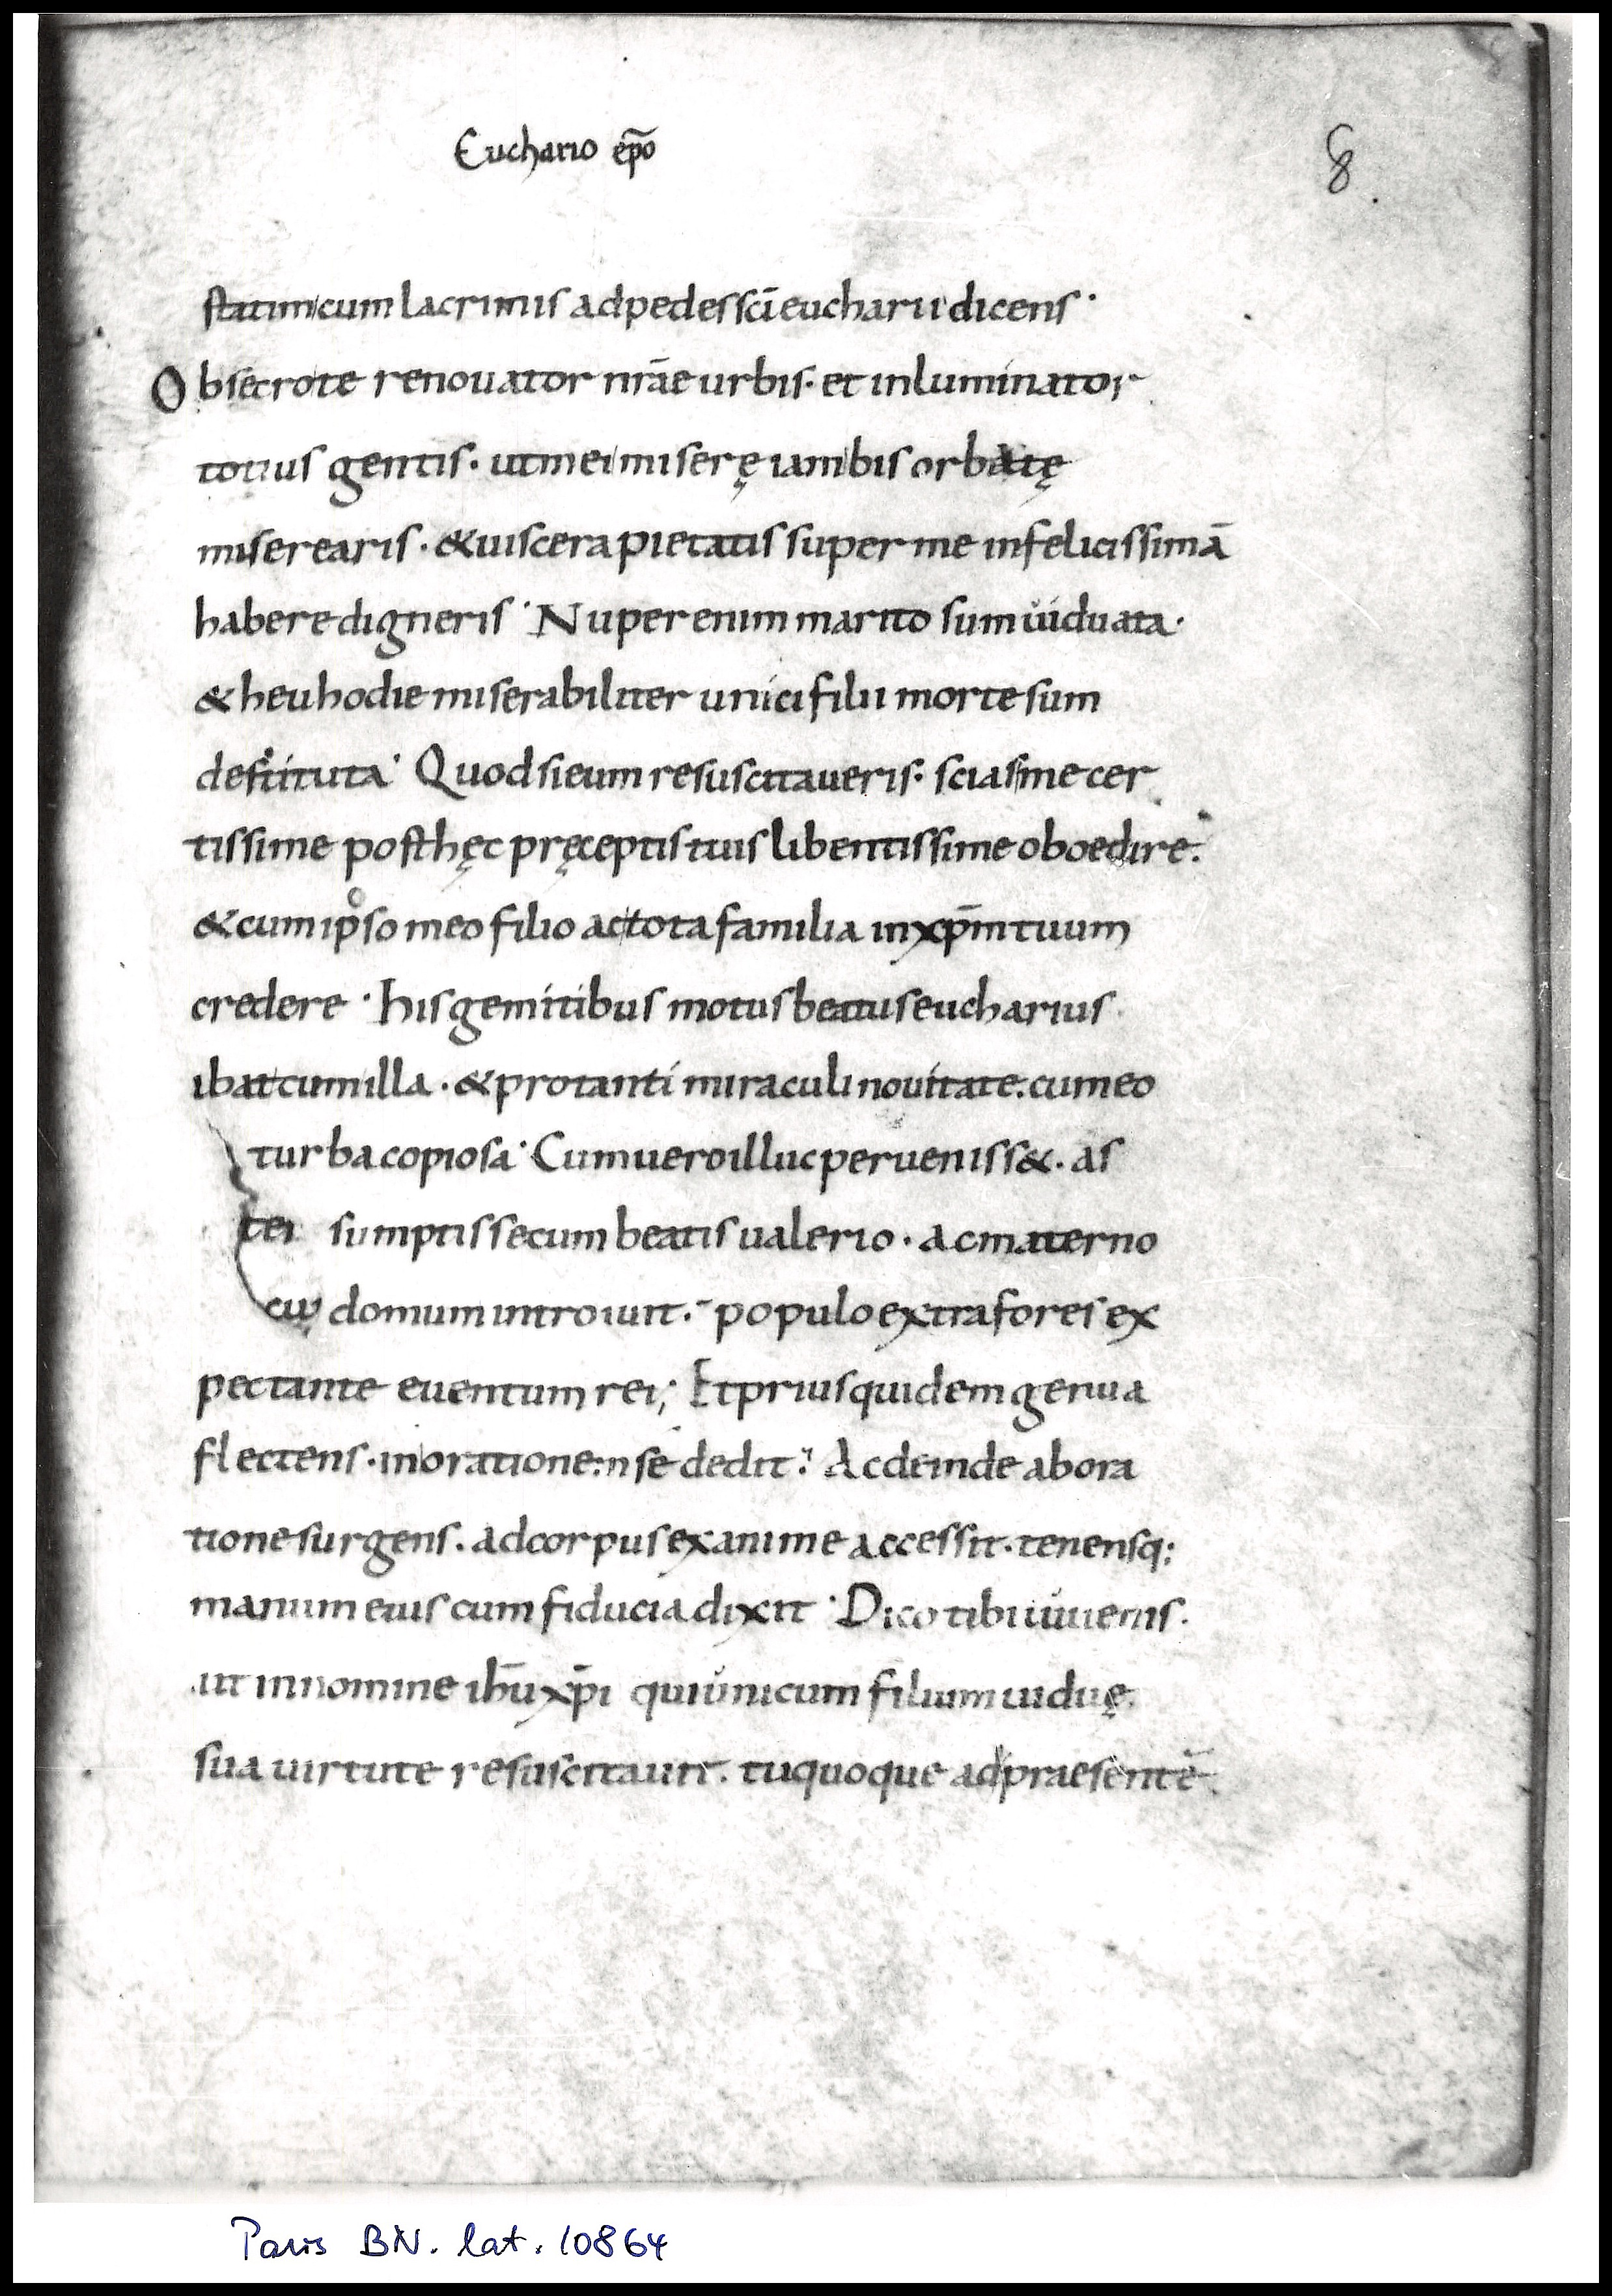 Euchario ep̃o
8
statim cum lacrimis ad pedes sc̄i eucharii dicens·
Obsecro te renouator nr̄ae urbis· et inluminator
totius gentis· ut mei miserę iam bis orbatę
miserearis· & uiscera pietatis super me infelicissimā
habere digneris· Nuper enim marito sum uiduata·
& heu hodie miserabiliter unici filii morte sum
destituta· Quod si eum resuscitaueris· scias me cer
tissime posthęc pręceptis tuis libentissime oboedire.
& cum ipso meo filio ac tota familia in xp̄m tuum
credere· his gemitibus motus beatus eucharius
ibat cum illa· & pro tanti miraculi nouitate. cum eo
turba copiosa· Cum uero illuc perueniss&· as
sumptis secum beatis ualerio· ac materno
domum introiuit· populo extra fores ex
pectante euentum rei; Et prius quidem genua
flectens· in orationem se dedit· Ac deinde ab ora
tione surgens· ad corpus exanime accessit· tenensq;
manum eius cum fiducia dixit· Dico tibi iuuenis·
ut in nomine ih̄u xp̄i qui unicum filium uiduę
sua uirtute resuscitauit· tu quoque ad praesentē
Paris BN. lat. 10864